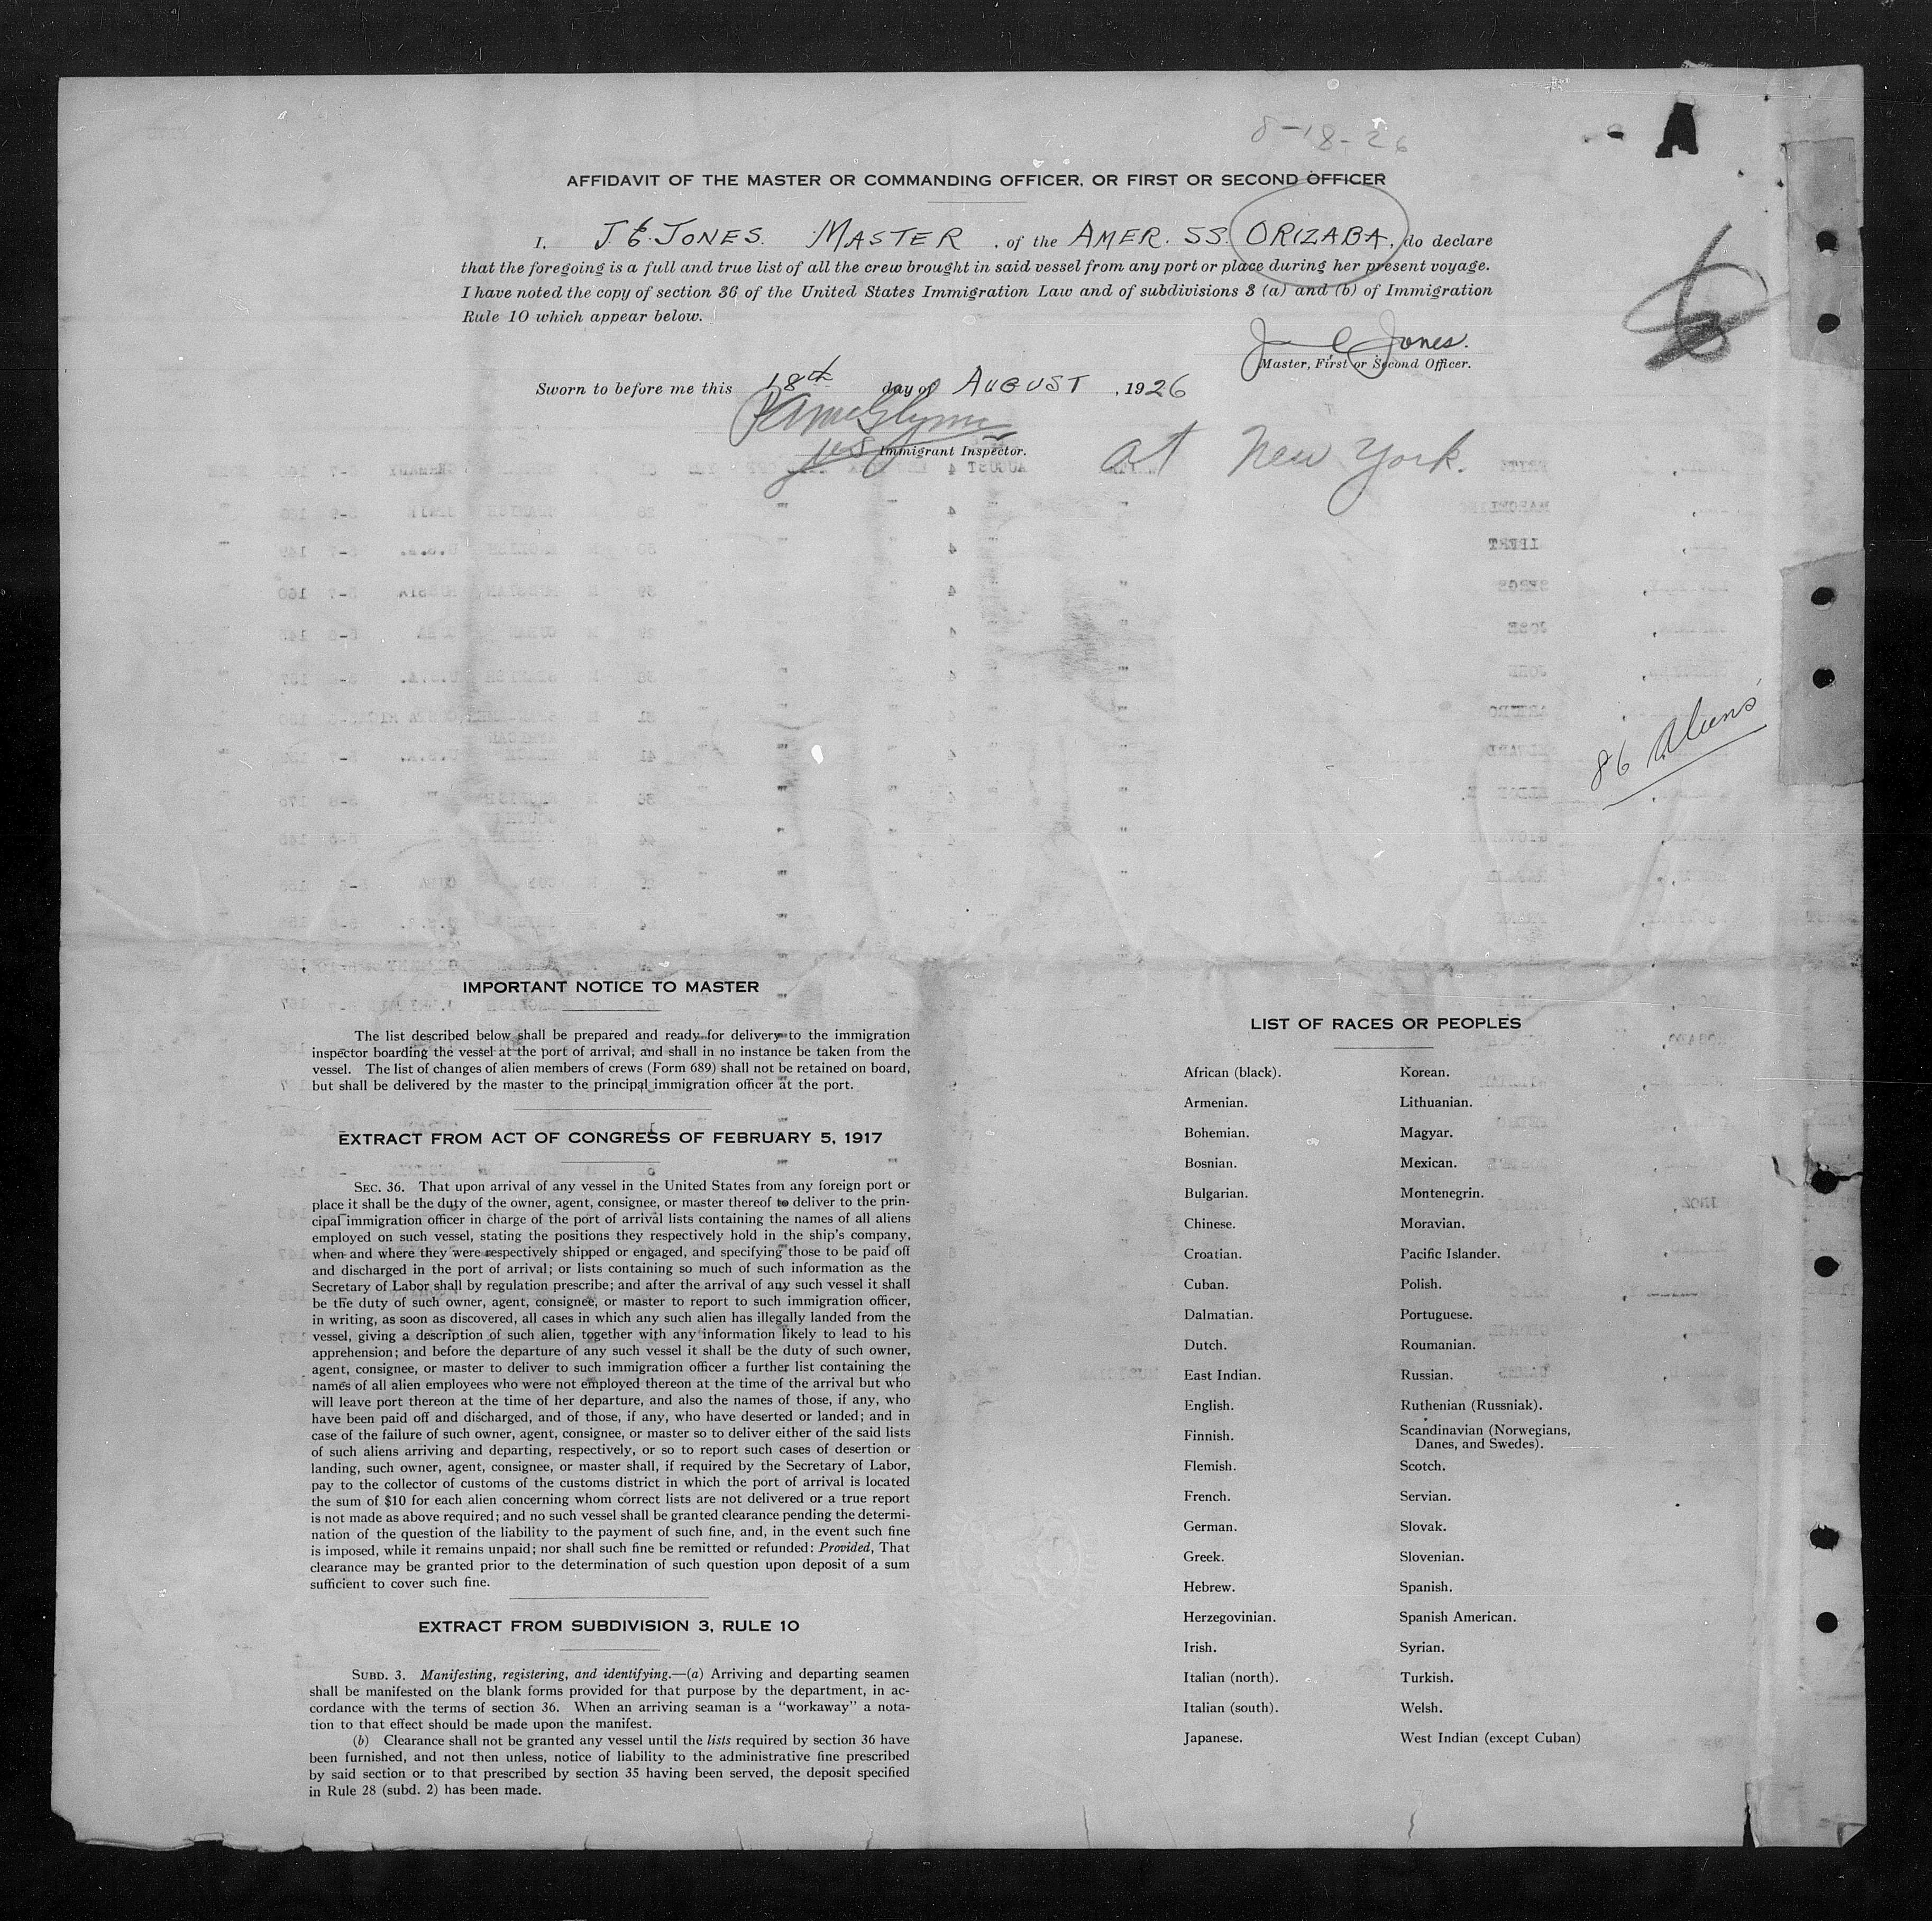 8-18-26
A
AFFIDAVIT OF THE MASTER OR COMMANDING OFFICER, OR FIRST OR SECOND OFFICER
I, J. E. JONES. MASTER, of the AMER. SS. ORIZABA, do declare
that the foregoing is a full and true list of all the crew brought in said vessel from any port or place during her present voyage.
I have noted the copy of section 36 of the United States Immigration Law and of subdivisions 3 (a) and (b) of Immigration
Rule 10 which appear below.
Jones.
Master, First or Second Officer.
Sworn to before me this 18th day of AUGUST, 1926
Immigrant Inspector.
at New York.
86 Aliens
IMPORTANT NOTICE TO MASTER
The list described below shall be prepared and ready for delivery to the immigration
inspector boarding the vessel at the port of arrival, and shall in no instance be taken from the
vessel. The list of changes of alien members of crews (Form 689) shall not be retained on board,
but shall be delivered by the master to the principal immigration officer at the port.
EXTRACT FROM ACT OF CONGRESS OF FEBRUARY 5, 1917
SEC. 36. That upon arrival of any vessel in the United States from any foreign port or
place it shall be the duty of the owner, agent, consignee, or master thereof to deliver to the prin-
cipal immigration officer in charge of the port of arrival lists containing the names of all aliens
employed on such vessel, stating the positions they respectively hold in the ship's company,
when and where they were respectively shipped or engaged, and specifying those to be paid off
and discharged in the port of arrival; or lists containing so much of such information as the
Secretary of Labor shall by regulation prescribe; and after the arrival of any such vessel it shall
be the duty of such owner, agent, consignee, or master to report to such immigration officer,
in writing, as soon as discovered, all cases in which any such alien has illegally landed from the
vessel, giving a description of such alien, together with any information likely to lead to his
apprehension; and before the departure of any such vessel it shall be the duty of such owner,
agent, consignee, or master to deliver to such immigration officer a further list containing the
names of all alien employees who were not employed thereon at the time of the arrival but who
will leave port thereon at the time of her departure, and also the names of those, if any, who
have been paid off and discharged, and of those, if any, who have deserted or landed; and in
case of the failure of such owner, agent, consignee, or master so to deliver either of the said lists
of such aliens arriving and departing, respectively, or so to report such cases of desertion or
landing, such owner, agent, consignee, or master shall, if required by the Secretary of Labor,
pay to the collector of customs of the customs district in which the port of arrival is located
the sum of $10 for each alien concerning whom correct lists are not delivered or a true report
is not made as above required; and no such vessel shall be granted clearance pending the determi-
nation of the question of the liability to the payment of such fine, and, in the event such fine
is imposed, while it remains unpaid; nor shall such fine be remitted or refunded: Provided, That
clearance may be granted prior to the determination of such question upon deposit of a sum
sufficient to cover such fine.
EXTRACT FROM SUBDIVISION 3, RULE 10
SUBD. 3. Manifesting, registering, and identifying.—(a) Arriving and departing seamen
shall be manifested on the blank forms provided for that purpose by the department, in ac-
cordance with the terms of section 36. When an arriving seaman is a "workaway" a nota-
tion to that effect should be made upon the manifest.
(b) Clearance shall not be granted any vessel until the lists required by section 36 have
been furnished, and not then unless, notice of liability to the administrative fine prescribed
by said section or to that prescribed by section 35 having been served, the deposit specified
in Rule 28 (subd. 2) has been made.
LIST OF RACES OR PEOPLES
African (black).
Armenian.
Bohemian.
Bosnian.
Bulgarian.
Chinese.
Croatian.
Cuban.
Dalmatian.
Dutch.
East Indian.
English.
Finnish.
Flemish.
French.
German.
Greek.
Hebrew.
Herzegovinian.
Irish.
Italian (north).
Italian (south).
Japanese.
Korean.
Lithuanian.
Magyar.
Mexican.
Montenegrin.
Moravian.
Pacific Islander.
Polish.
Portuguese.
Roumanian.
Russian.
Ruthenian (Russniak).
Scandinavian (Norwegians,
Danes, and Swedes).
Scotch.
Servian.
Slovak.
Slovenian.
Spanish.
Spanish American.
Syrian.
Turkish.
Welsh.
West Indian (except Cuban)